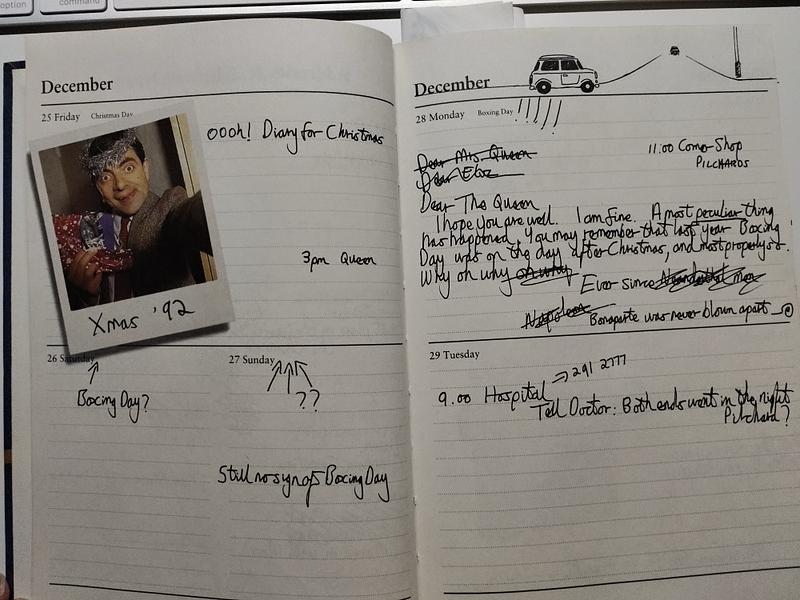 option
command
December
25 Friday Christmas Day
oooh! Diary for Christmas
3pm Queen
Xmas '92
26 Saturday
Boxing Day?
27 Sunday
??
Still no sign of Boxing Day
December
28 Monday Boxing Day
11.00 Corner Shop
PILCHARDS
Dear Mrs. Queen
Dear Eliz
Dear The Queen
I hope you are well. I am fine. A most peculiar thing
has happened. You may remember that last year Boxing
Day was on the day after Christmas, and most properly so.
Why oh why oh why
Ever since Neanderthal man
Napoleon Bonaparte was never blown apart
29 Tuesday
9.00 Hospital => 291 2777
Tell Doctor: Both ends went in the night
Pilchard?